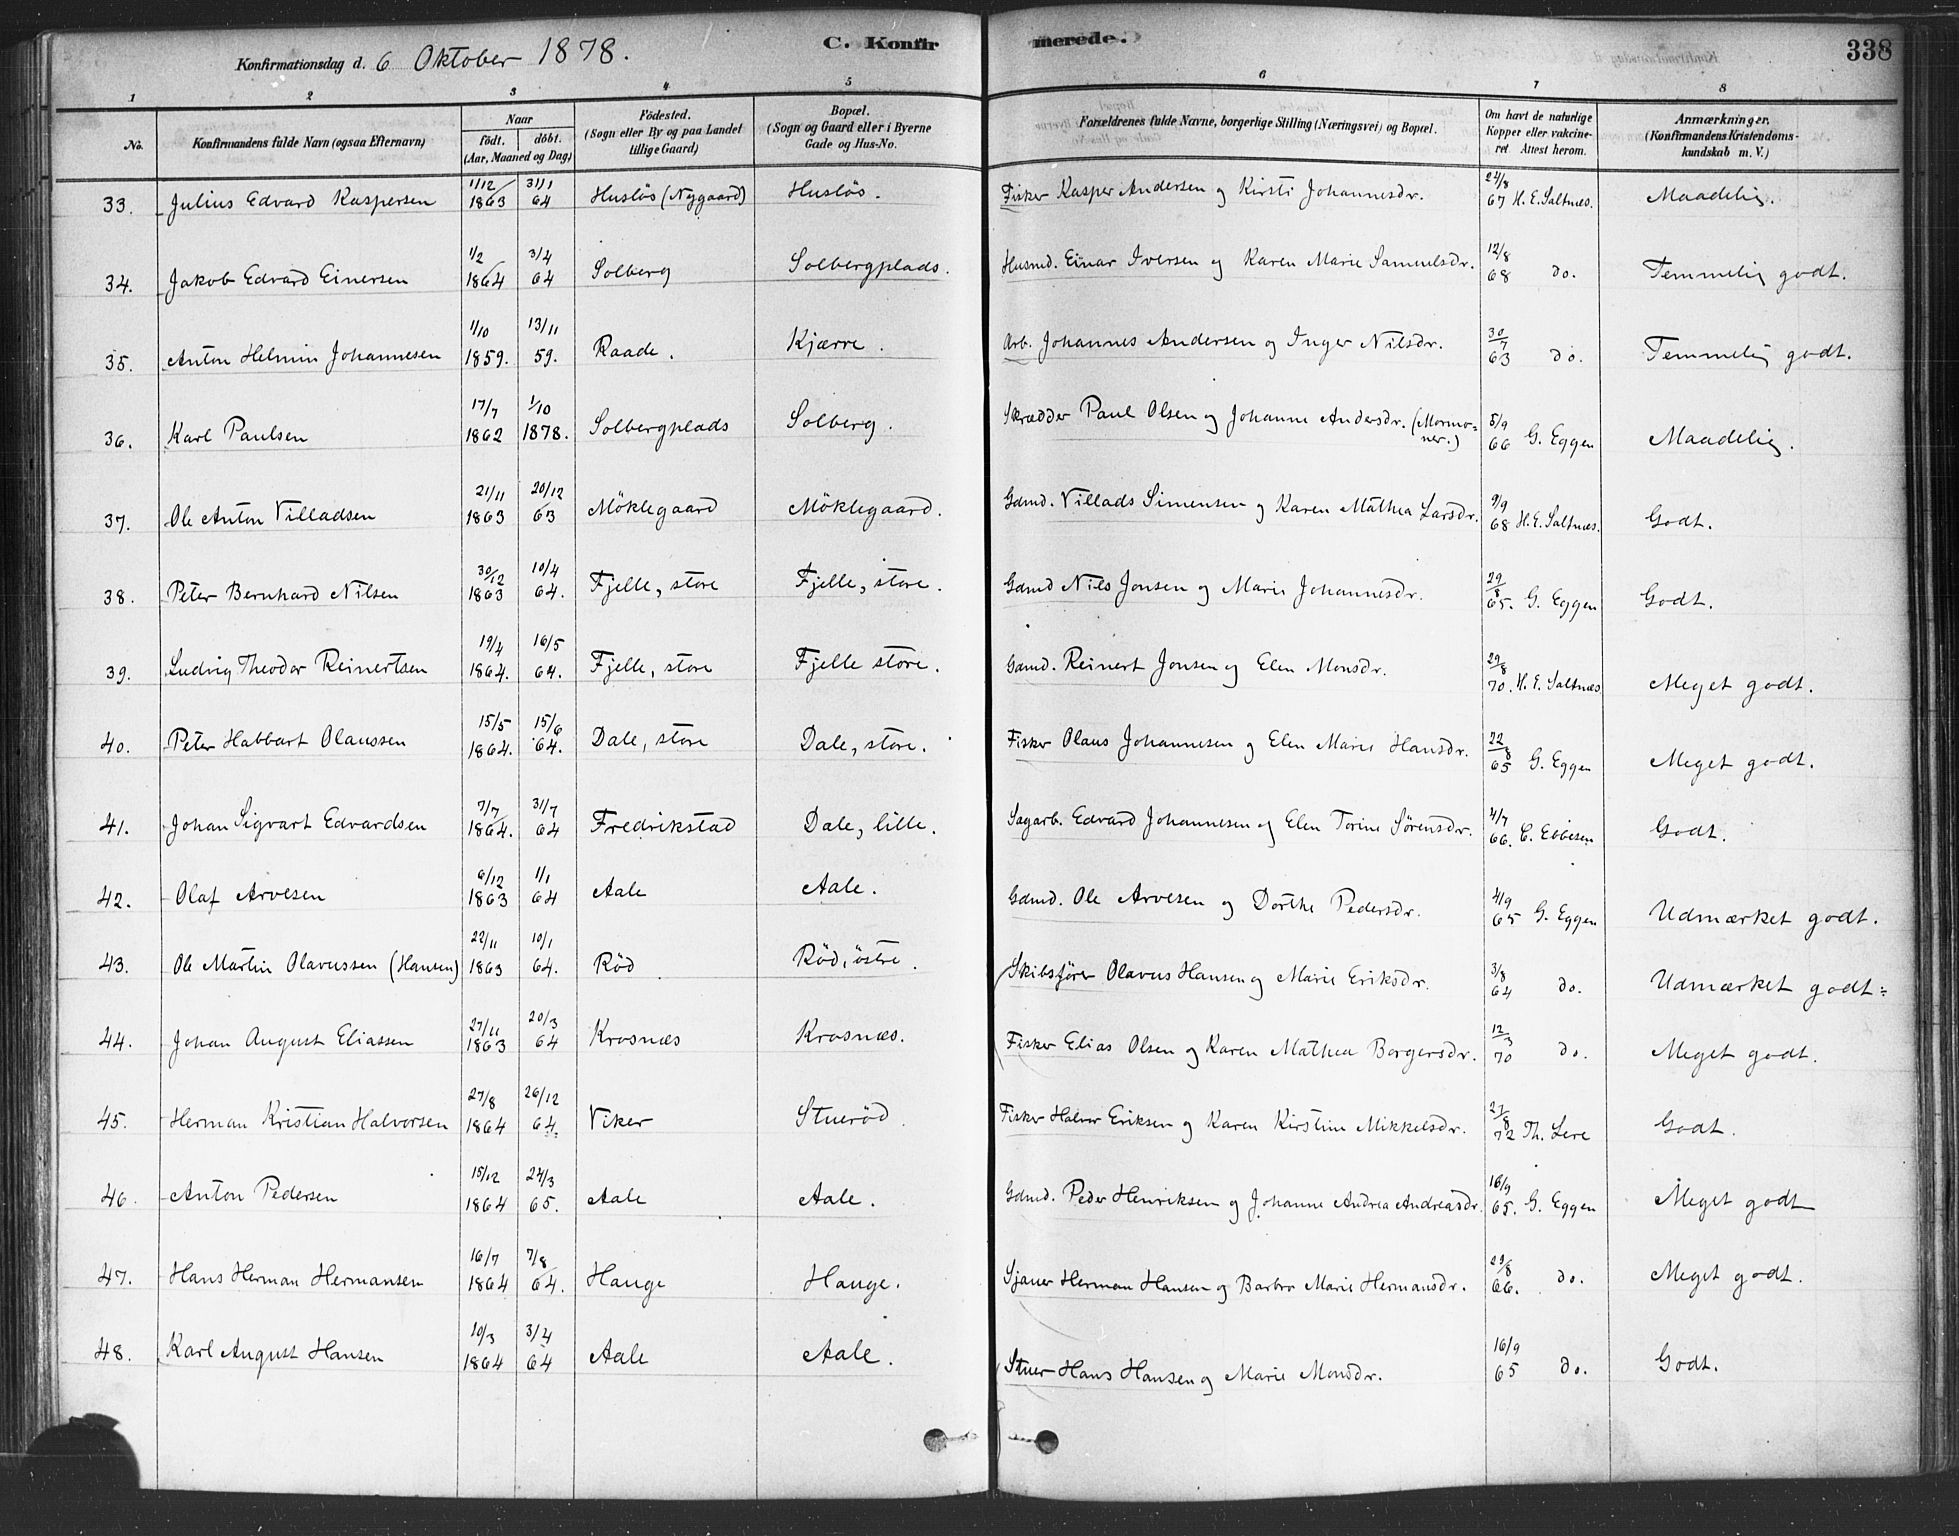 Konfirmationsdag d. 6 Oktober 1878. C. Konfirmerede. 338
1 2 3 4 5 6 7 8
No. Konfirmandens fulde Navn (ogsaa Efternavn) Naar födt. döbt. (Aar, Maaned og Dag) Födested. (Sogn eller By og paa Landet tillige Gaard) Bopæl. (Sogn og Gaard eller i Byerne Gade og Hus-No. Forældrenes fulde Navne, borgerlige Stilling (Næringsvei) og Bopæl. Om havt de naturlige Kopper eller vakcineret. Attest herom. Anmærkninger. (Konfirmandens Kristendomskundskab m. V.)
33. Julius Edvard Kaspersen 1/12 1863 31/1 64 Husløs (Nygaard) Husløs. Fisker Kasper Andersen og Kirsti Johannesdr. 24/8 67 H. E. Saltnæs. Maadelig.
34. Jakob Edvard Einersen 1/2 1864 3/4 64 Solberg Solbergplads. Husmd. Einar Iversen og Karen Marie Samuelsdr. 12/8 68 do. Temmelig godt.
35. Anton Helmin Johannesen 1/10 1859. 13/11 59. Raade. Kjærre. Arb. Johannes Andersen og Inger Nilsdr. 30/7 63 do. Temmelig godt.
36. Karl Paulsen 17/7 1862 1/10 1878. Solbergplads Solberg. Skrædder Paul Olsen og Johanne Andersdr. (Mormoner.) 5/9 66 G. Eggen Maadelig.
37. Ole Anton Villadsen 21/11 1863 20/12 63 Möklegaard Möklegaard. Gdmd. Villads Simensen og Karen Mathea Larsdr. 9/9 68 H. E. Saltnæs. Godt.
38. Peter Bernhard Nilsen 30/12 1863 10/4 64. Fjelle, store Fjelle, store. Gdmd Nils Jonsen og Marie Johannesdr. 29/8 65. G. Eggen Godt.
39. Ludvig Theodor Reinertsen 19/4 1864. 16/5 64. Fjelle, store Fjelle store. Gdmd. Reinert Jonsen og Elen Monsdr. 29/8 70. H. E. Saltnæs Meget godt.
40. Peter Habbart Olaussen 15/5 1864. 15/6 64. Dale, store Dale, store. Fisker Olaus Johannesen og Elen Marie Hansdr. 22/8 65 G. Eggen Meget godt.
41. Johan Sigvart Edvardsen 7/7 1864. 31/7 64 Fredrikstad Dale, lille. Sagarb. Edvard Johannesen og Elen Torine Sørensdr. 4/7 66. C. Ebbesen Godt.
42. Olaf Arvesen 6/12 1863 1/1 64 Aale Aale. Gdmd. Ole Arvesen og Dorthe Pedersdr. 4/9 65 G. Eggen Udmærket godt.
43. Ole Martin Olavussen (Hansen) 22/11 1863 10/1 64. Rød Rød, östre. Skibsfører Olavus Hansen og Marie Eriksdr. 3/8 64 do. Udmærket godt.
44. Johan August Eliassen 27/11 1863 20/3 64 Krosnæs Krosnæs. Fisker Elias Olsen og Karen Mathea Borgersdr. 12/3 70 do. Meget godt.
45. Herman Kristian Halvorsen 27/8 1864 26/12 64. Viker Stuerød. Fisker Halvor Eriksen og Karen Kirstine Mikkelsdr. 27/8 72 Th. Lere Godt.
46. Anton Pedersen 15/12 1864 24/3 65. Aale Aale. Gdmd. Peder Henriksen og Johanne Andrea Andreasdr. 16/9 65. G. Eggen Meget godt
47. Hans Herman Hermansen 16/7 1864 7/8 64. Hauge Hauge. Sjauer Herman Hansen og Barbro Marie Hermansdr. 29/8 66. do. Meget godt.
48. Karl August Hansen 10/3 1864 3/4 64 Aale Aale. Stuer Hans Hansen og Marie Monsdr. 16/9 65 do. Godt.